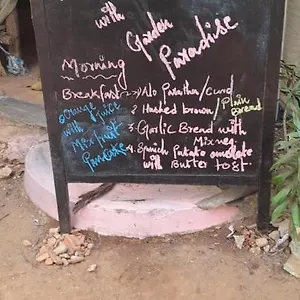 with
Garden
Paradise
Morning
Breakfast → 1 Alo Paratha / Curd
2 Hashed brown / Plain Bread
3 Garlic Bread with
Mix Veg
4 Spinich Potato omelate
with Butter tost
Orange
Juice
with
Mix fruit
Pancake